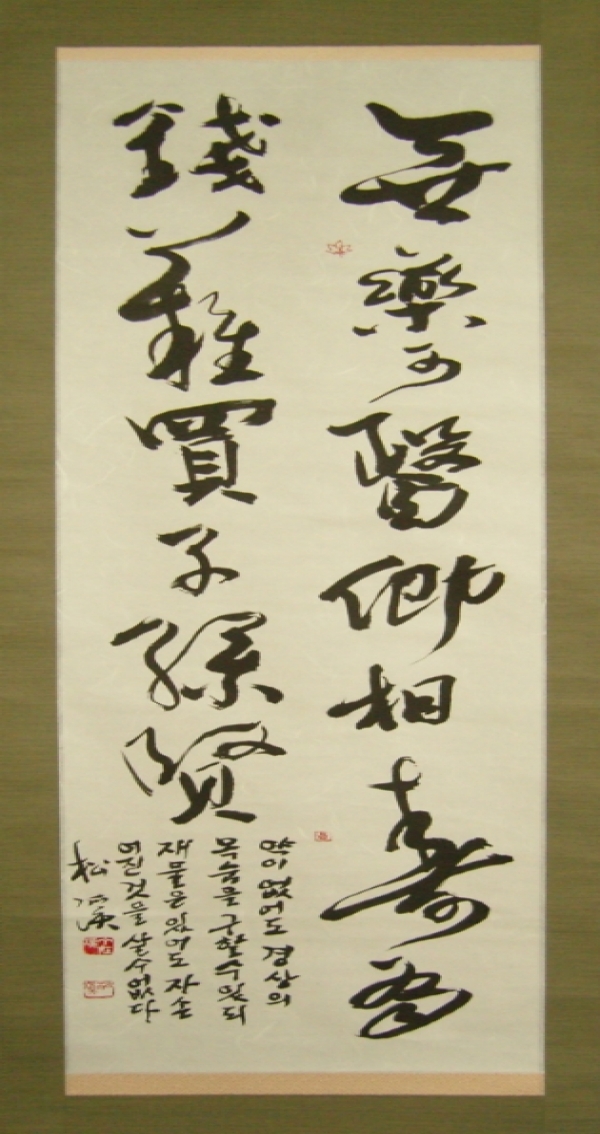 無藥可醫卿相壽有
錢難買子孫賢
약이 없어도 경상의
목숨을 구할수 있되
재물은 있어도 자손
어진 것을 살수 없다
松溪